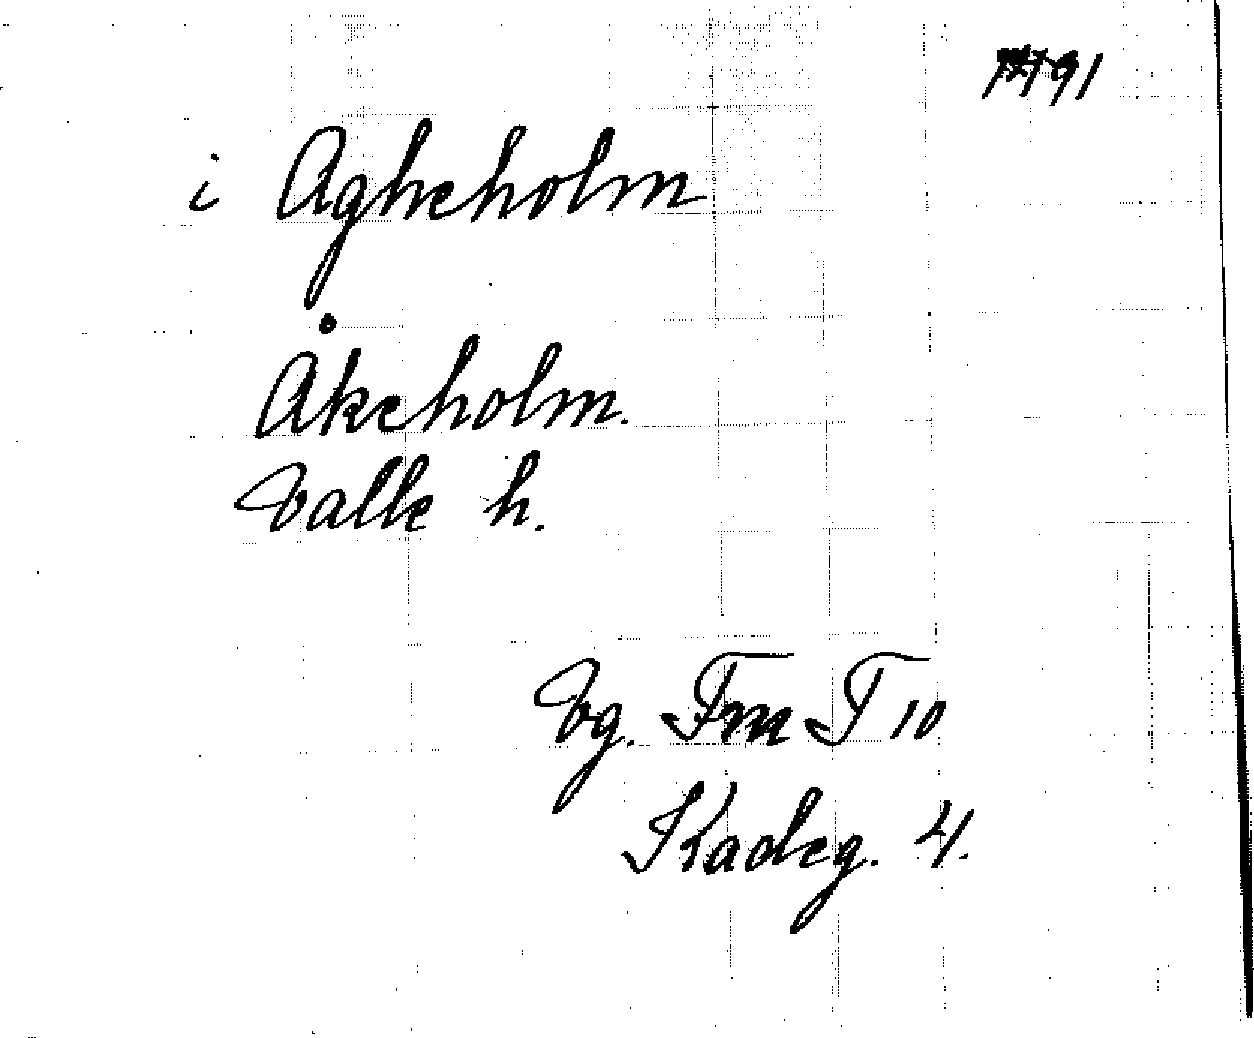 1491
i Agheholm
Åkeholm.
Valle h.
Vg. Fm T 10
Kadeg. 4.